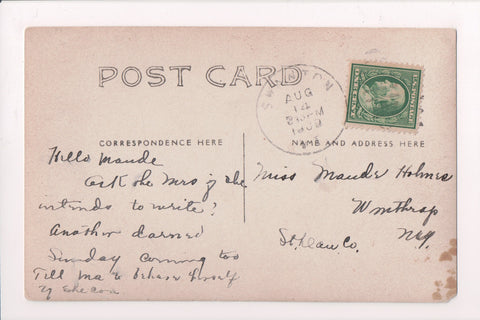 POST CARD
SWANTON
AUG
14
1909
U.S. POSTAGE
CORRESPONDENCE HERE
NAME AND ADDRESS HERE
Hello Maude
Ask the Mrs if she
intends to write?
Another darned
Sunday coming too
Tell Ma to behave herself
if she can
Miss Maude Holmes
Winthrop
St. Law. Co.
N.Y.